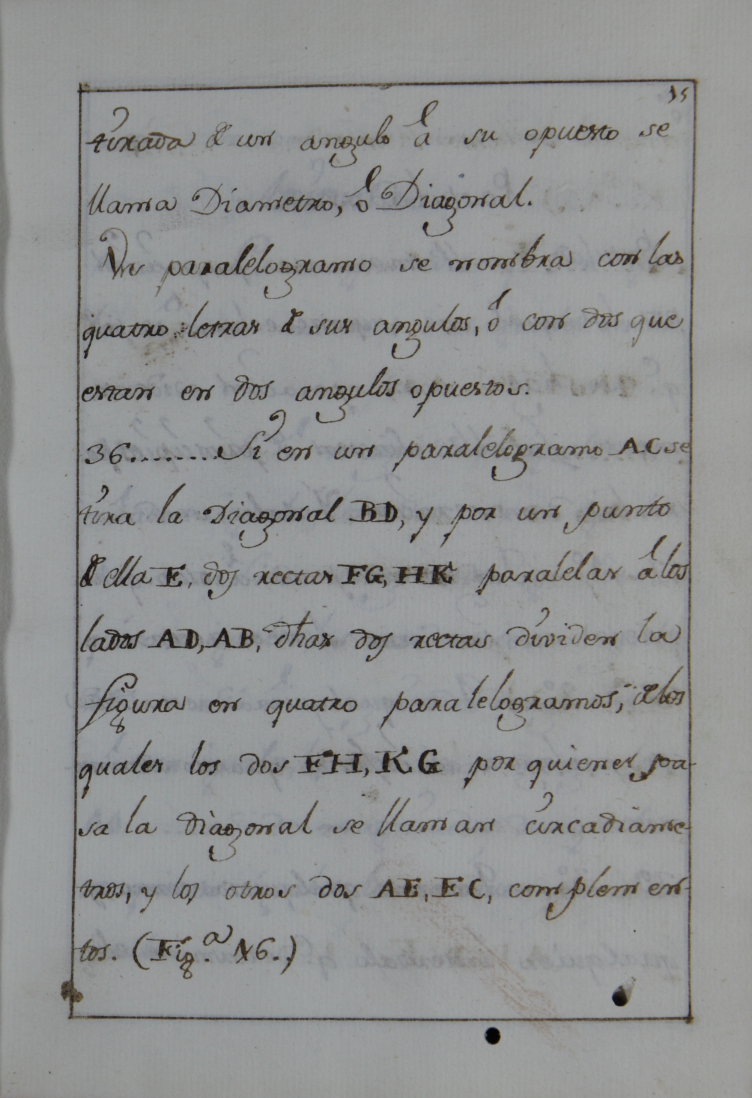 15
tirada de un angulo à su opuesto se
llama Diametro, ò Diagonal.
Un paralelogramo se nombra con las
quatro letras de sus angulos, ò con dos que
estan en dos angulos opuestos.
36........Si en un paralelogramo AC se
tira la Diagonal BD, y por un punto
de ella E, dos rectas FG, HK paralelas à los
lados AD, AB, dhas dos rectas dividen la
figura en quatro paralelogramos, de los
quales los dos FH, KG por quienes pa-
sa la diagonal se llaman circadiame-
tros, y los otros dos AE, EC, complemen-
tos. (Fig.ª 16.)